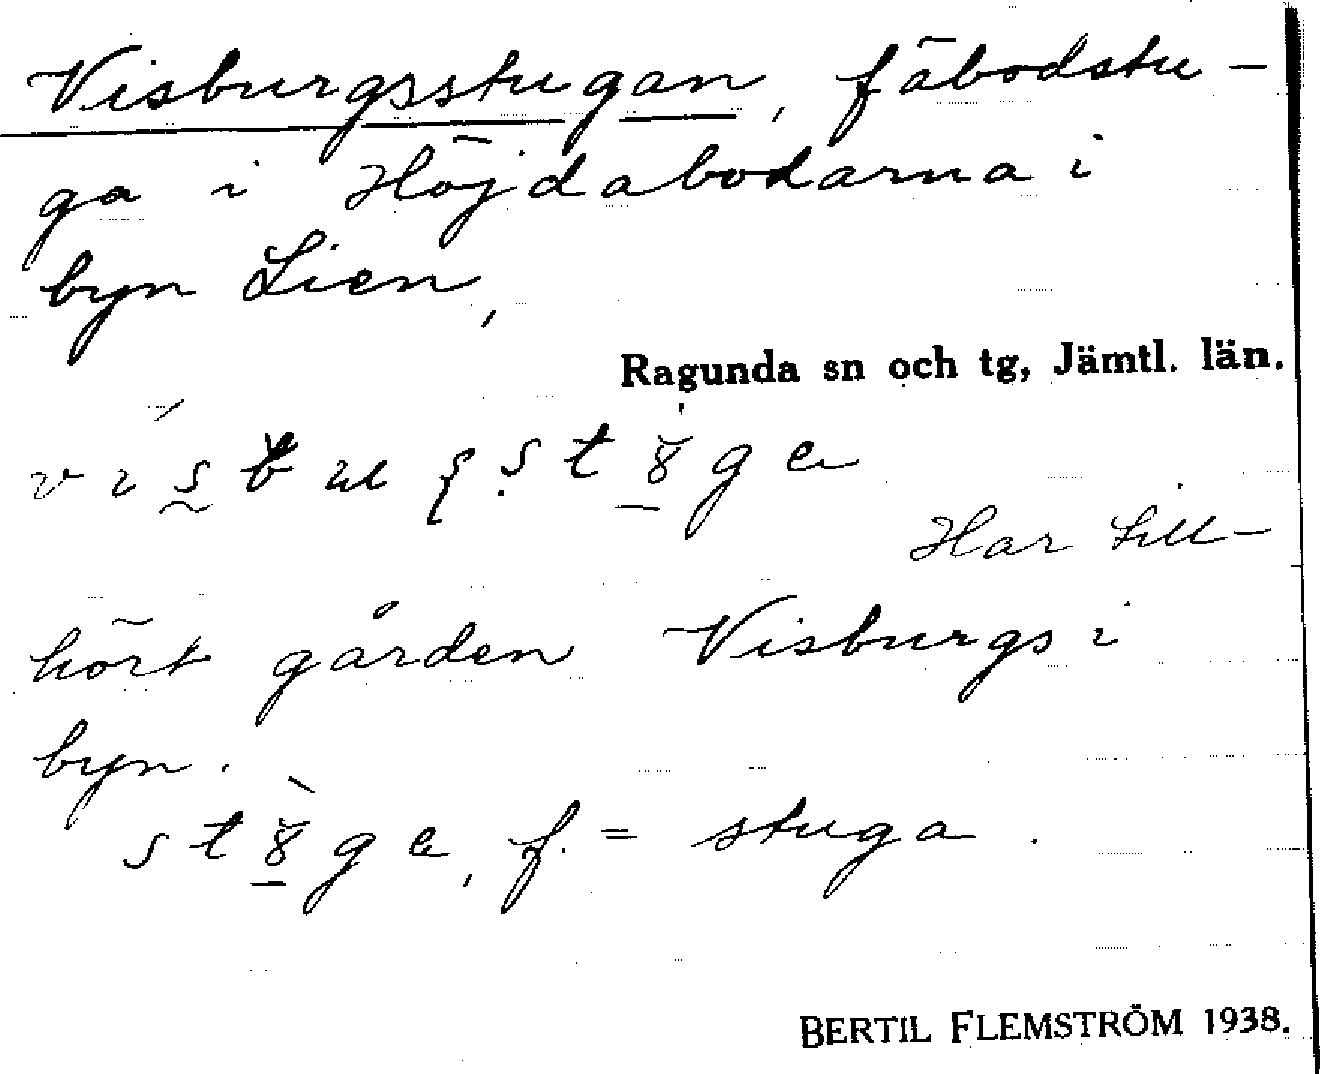 Visburgsstugan, fäbodstu-
ga i Höjdabodarna i
byn Lien,
Ragunda sn och tg, Jämtl. län.
Har till-
hört gården Visburgs i
byn.
f. = stuga.
BERTIL FLEMSTRÖM 1938.